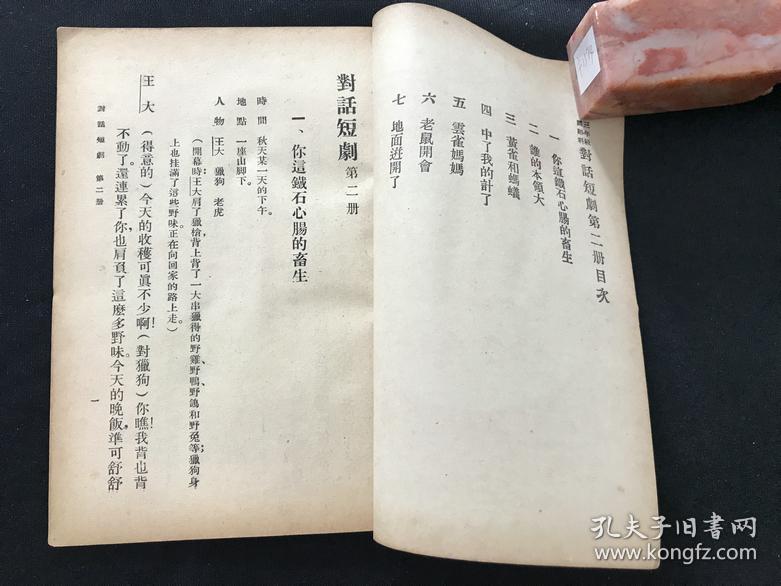 對話短劇第二册目次
一 你這鐵石心腸的畜生
二 誰的本領大
三 黃雀和螞蟻
四 中了我的計了
五 雲雀媽媽
六 老鼠開會
七 地面迸開了
對話短劇 第二册
一、你這鐵石心腸的畜生
時間 秋天某一天的下午。
地點 一座山脚下。
人物 王大 獵狗 老虎
(開幕時:王大肩了獵槍,背上背了一大串獵得的野雞、野鴨、野鴿和野兎等;獵狗身
上也挂滿了這些野味。正在向回家的路上走)
王大 (得意的)今天的收穫可眞不少啊!(對獵狗)你瞧!我背也背
不動了,還連累了你,也肩負了這麼多野味。今天的晚飯,準可舒舒
對話短劇 第二册
一
孔夫子旧书网
www.kongfz.com